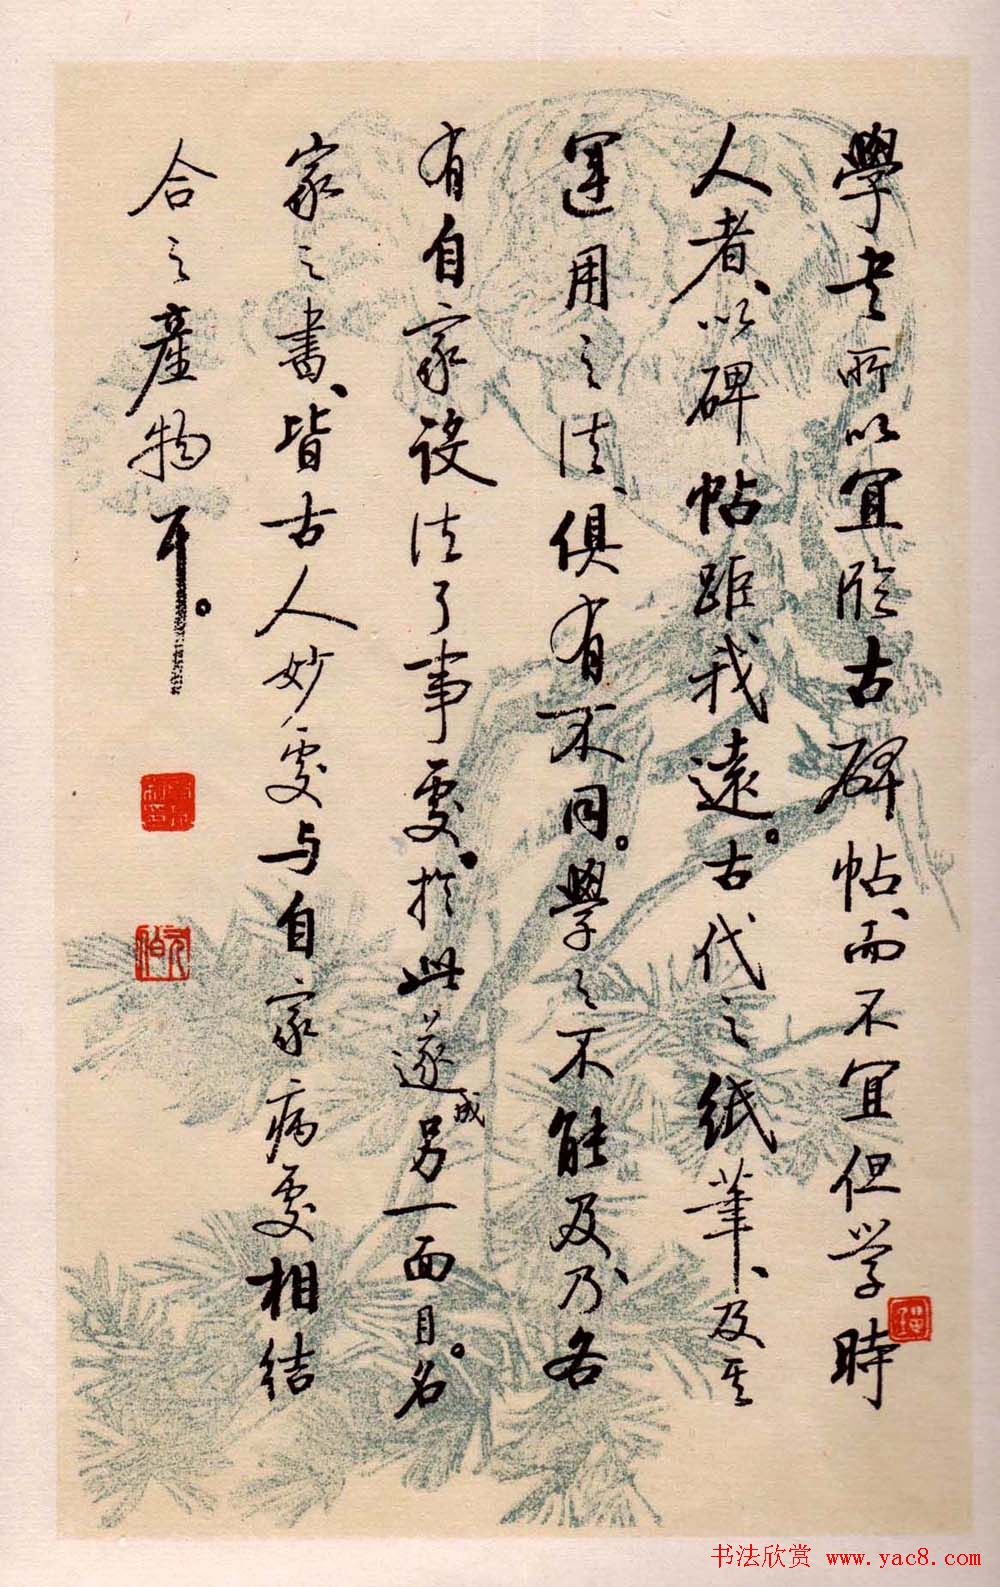 學书所以宜临古碑帖、而不宜但学時
人者、以碑帖距我遠。古代之紙筆、及其
運用之法、俱有不同。學之不能及、乃各
有自家设法了事處。於此遂成另一面目。名
家之書、皆古人妙處与自家病處相结
合之產物耳。
书法欣赏 www.yac8.com